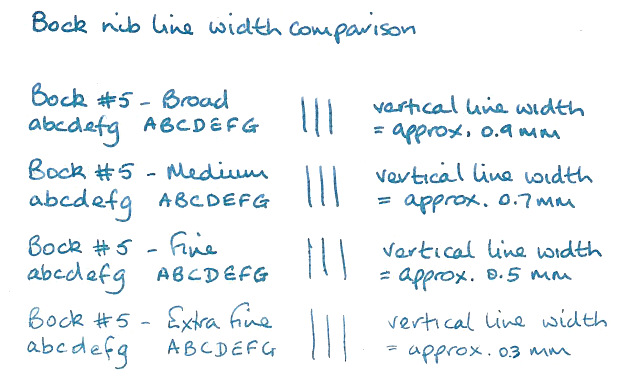 Bock nib line width comparison
Bock #5 - Broad ||| vertical line width
abcdefg ABCDEFG = approx. 0.9 mm
Bock #5 - Medium ||| vertical line width
abcdefg ABCDEFG = approx. 0.7 mm
Bock #5 - Fine ||| vertical line width
abcdefg ABCDEFG = approx. 0.5 mm
Bock #5 - Extra Fine ||| vertical line width
abcdefg ABCDEFG = approx. 0.3 mm